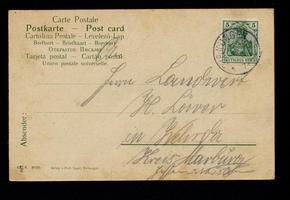 Carte Postale
Postkarte — Post card
Cartolina Postale – Levelező-Lap
Dopisnice – Briefkaart – Brefkort
Открытое Письмо
Tarjeta postal – Cartão postal
Union postale universelle.
5 5
DEUTSCHES REICH
Herrn Landwirt
H. Löwer
in Wehrda
Kreis Marburg
Absender: